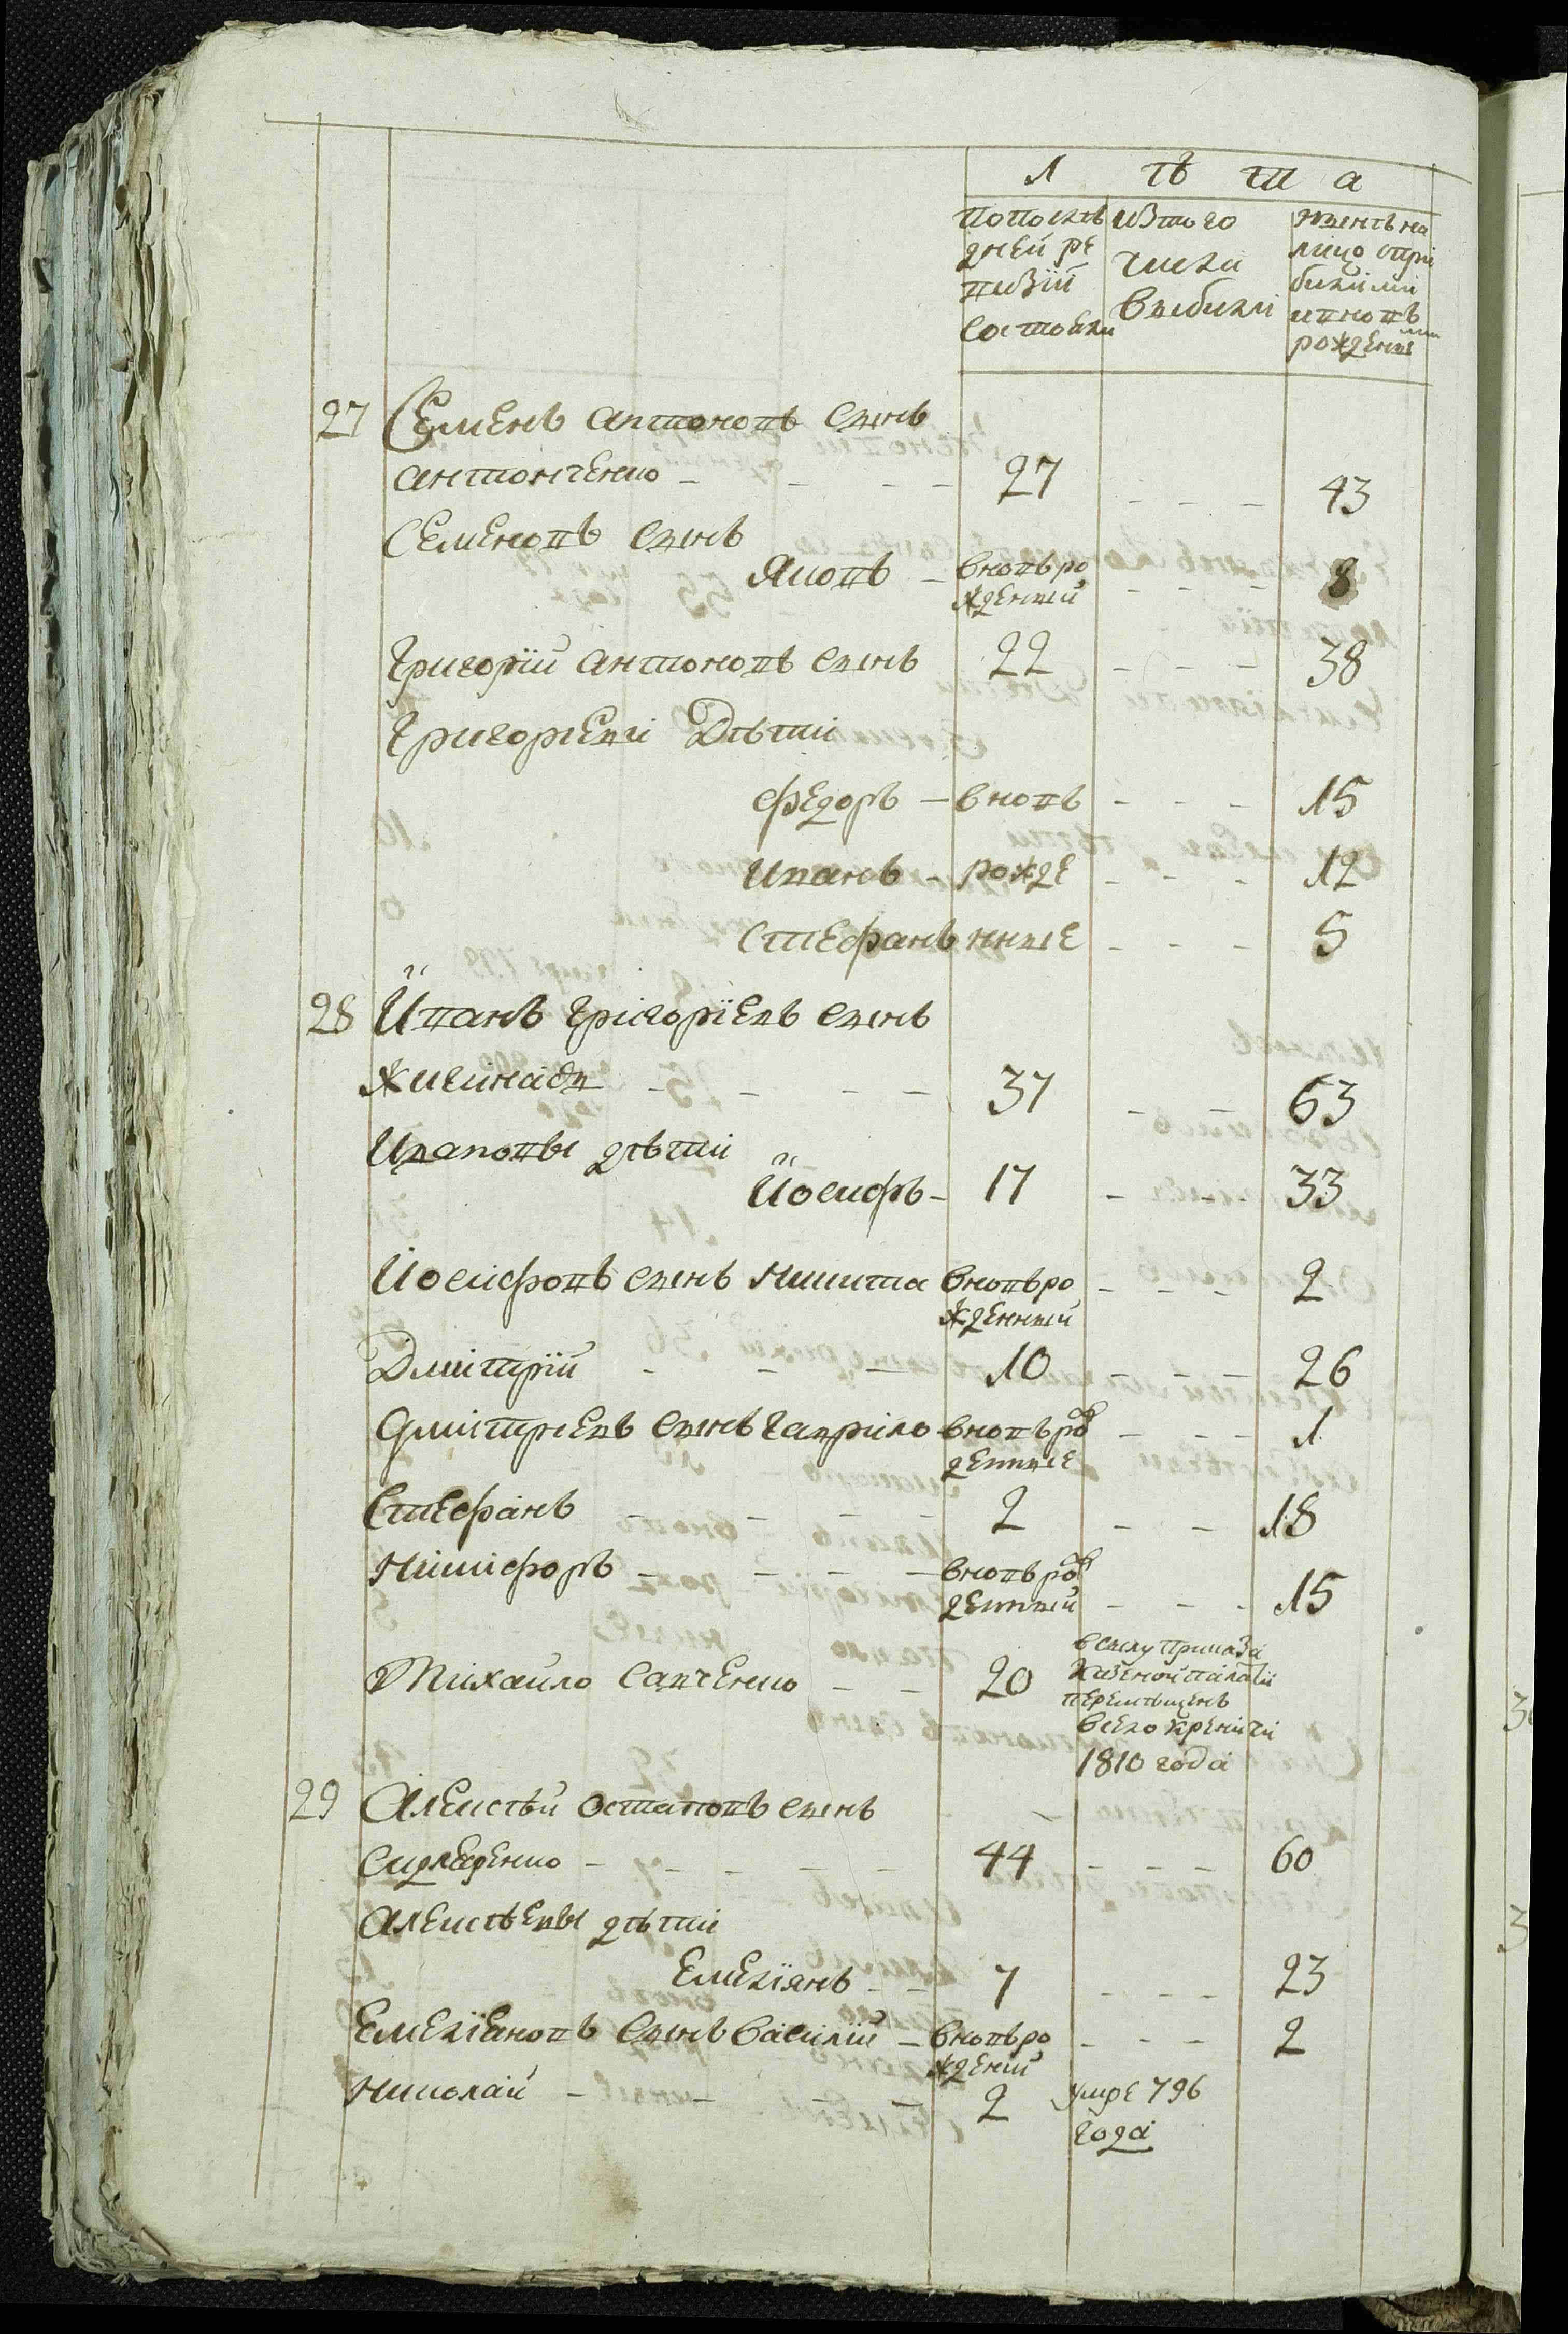 Л ѣ т а
по послѣдней ревизiи состояли
из того числа выбыли
нынѣ на лицо с прибылими и новорожденными
27 Семенъ антоновъ сынъ
антонченко - - - - 27 - - - 43
Семеновъ сынъ
Яковъ - вновь рожденный - - - 8
Григорiй антоновъ сынъ 22 - - - 38
Григориевы Дѣти
федоръ - вновь - - - 15
Иванъ - рожде - - - 12
Стефанъ нные - - - 5
28 Иванъ григорiевъ сынъ
- - - - 37 - - 63
Ивановы дѣти
Иосифъ - 17 - - 33
Иосифовъ сынъ Никита вновь рожденный - - - 2
Дмитрiй - - - 10 - - - 26
дмитриевъ сынъ гаврило вновь рожденные - - - 1
Стефанъ - - - 2 - - 18
Никифоръ - - - - вновь рожденный - - - 15
Михайло савченко - - 20 в силу приказа казеной палати перемѣщенъ в село кренички 1810 года
29 Алексѣй остаповъ сынъ
сидларенко - - - - - 44 - - - 60
Алексѣевы дѣти
Емелiянъ - - 7 - - - 23
Емелiановъ сынъ Василiй - вновь рожденiй - - - 2
Николай - - - 2 умре 796 года